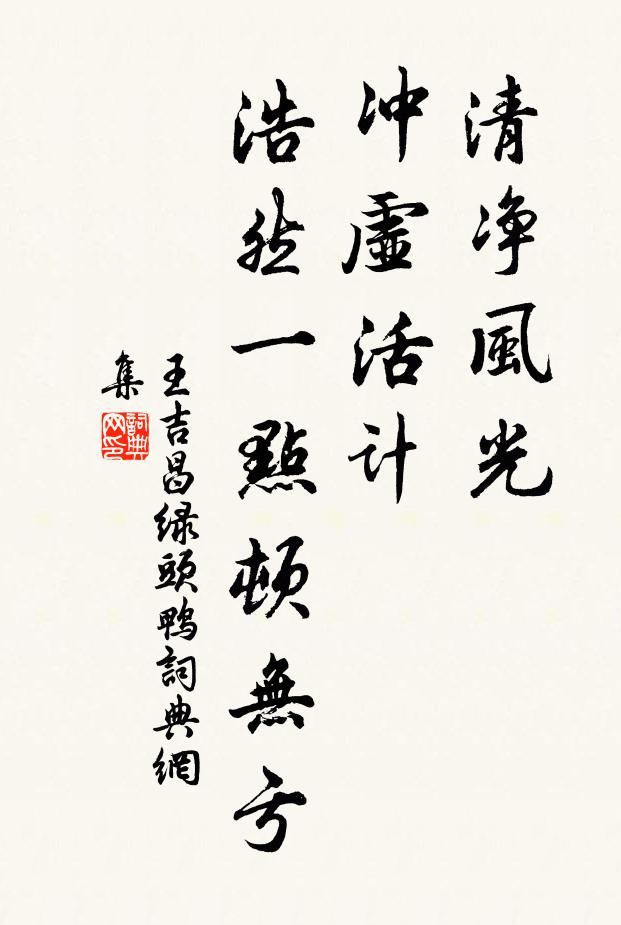 清净風光
冲虛活计
浩然一點頓無亏
王吉昌绿頭鴨詞典網
集
詞典
网印